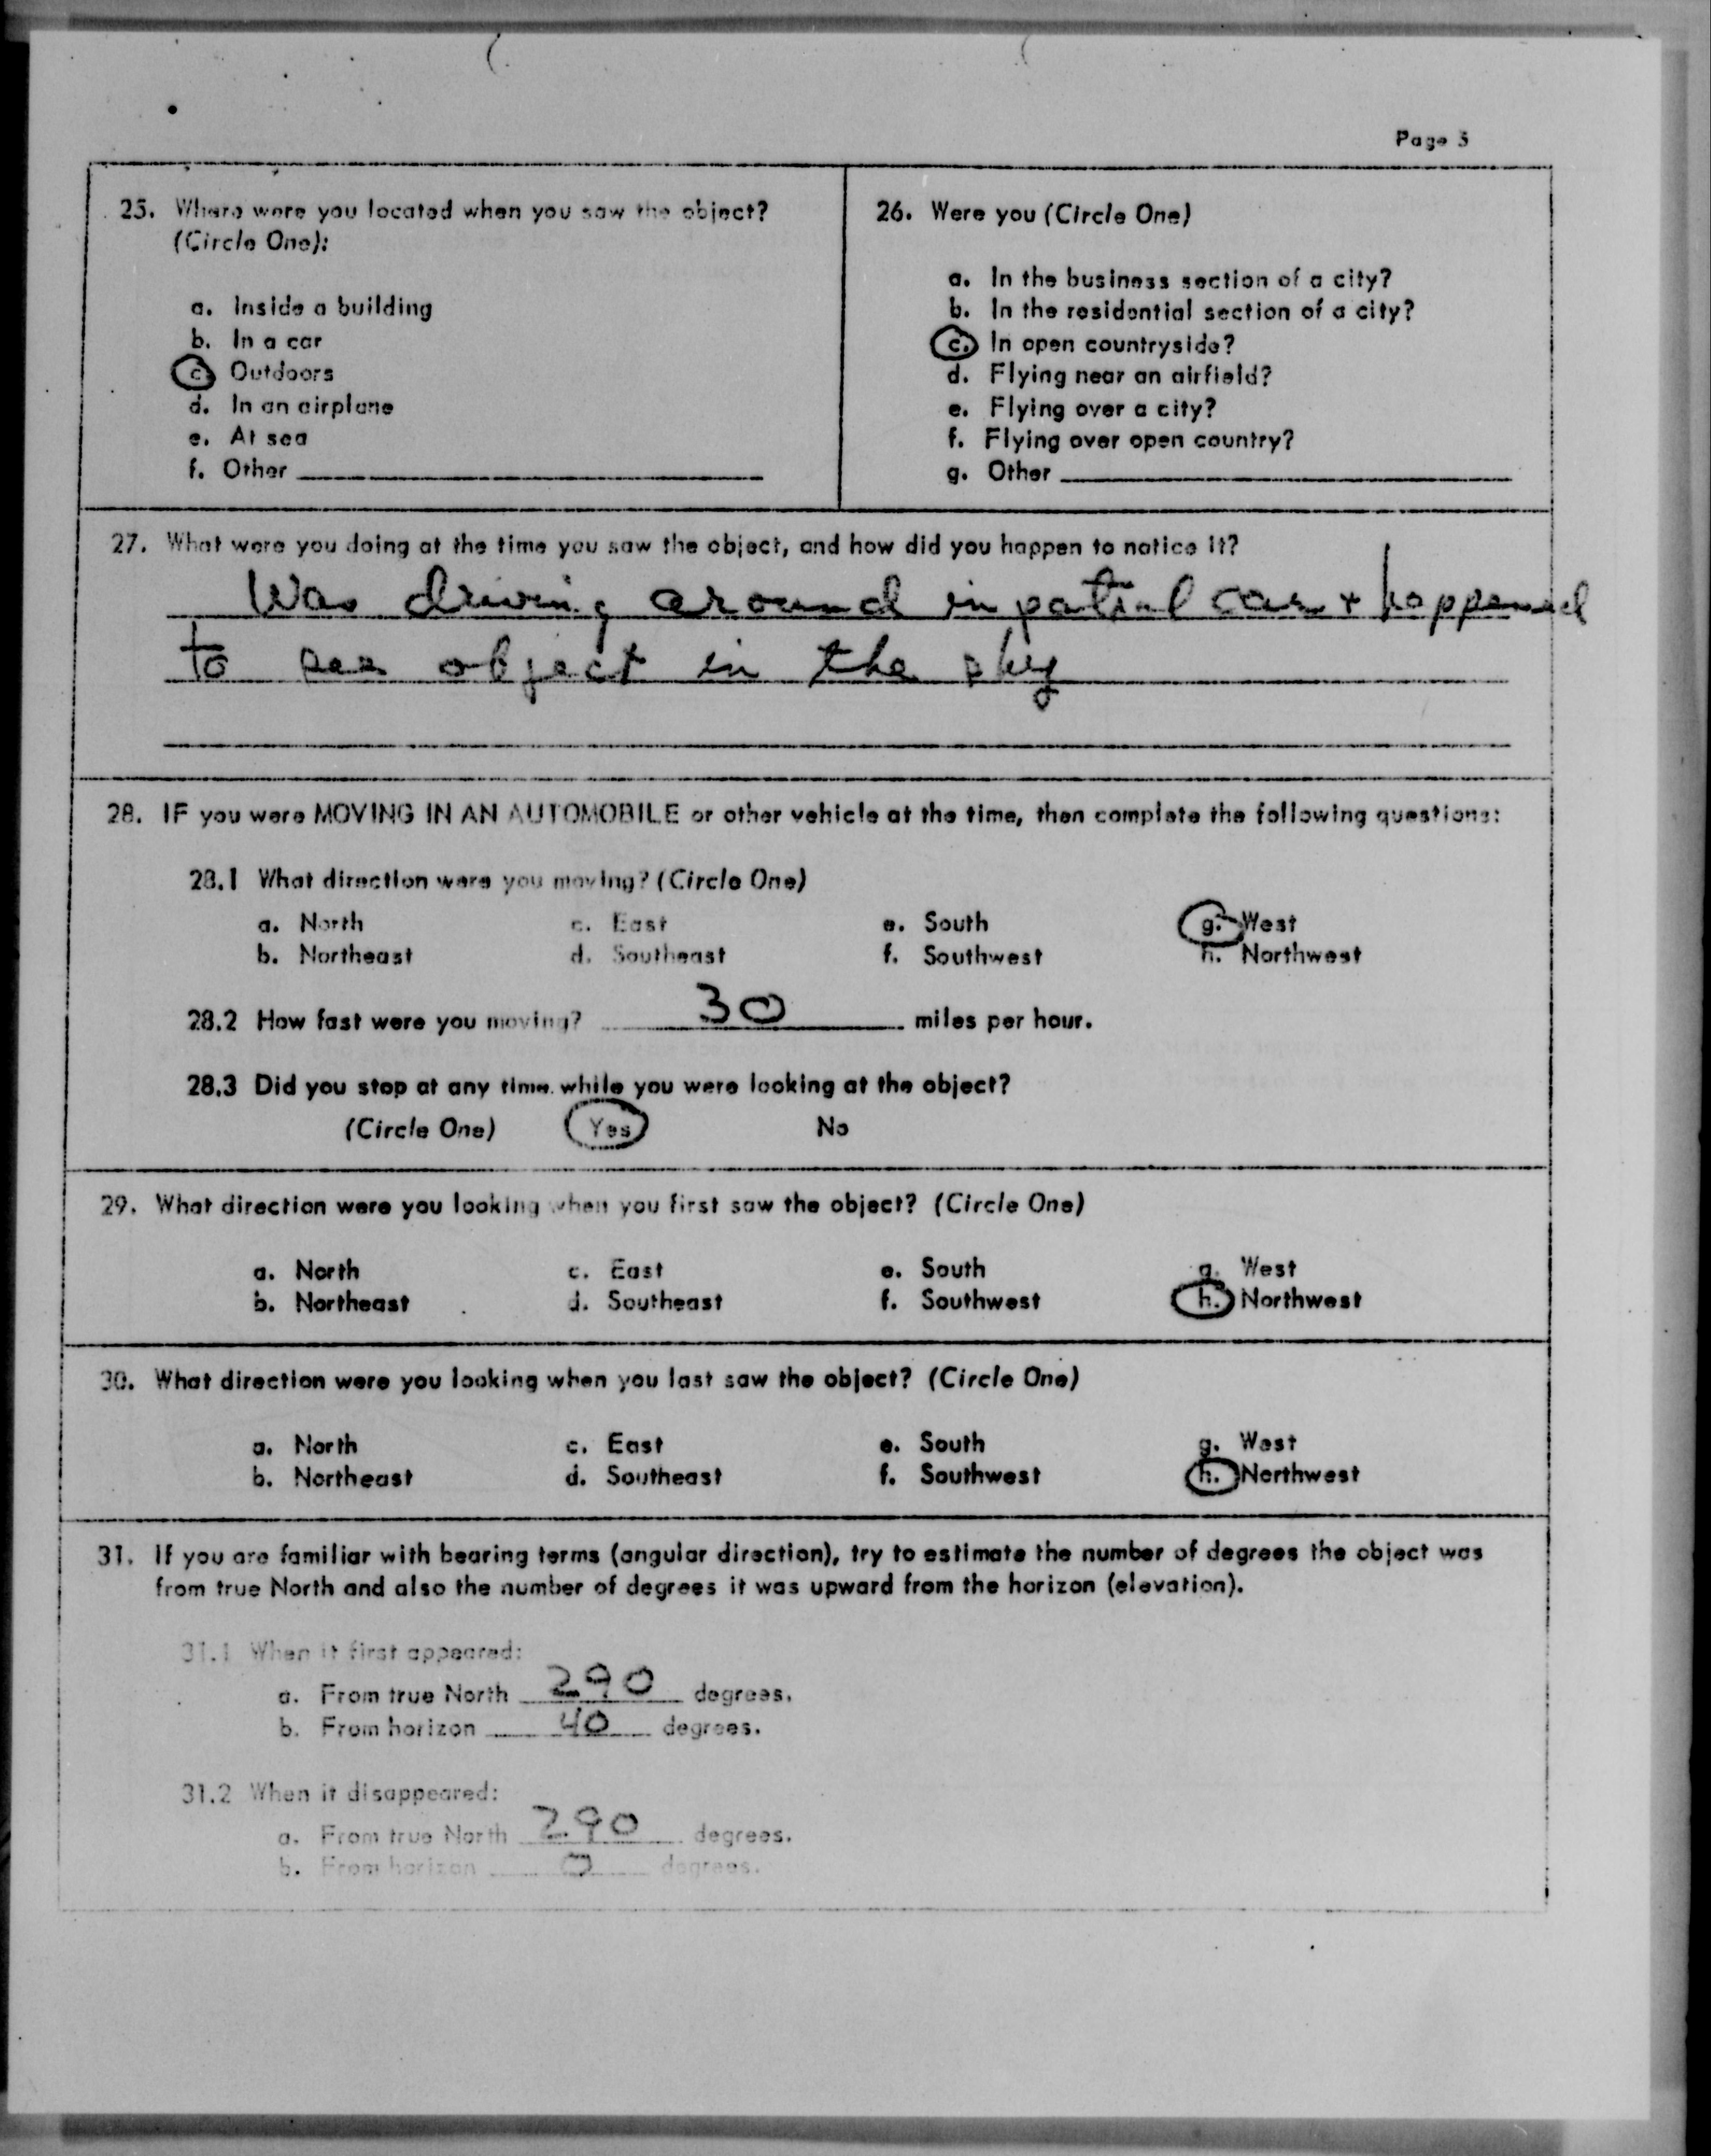 Page 5
25. Where were you located when you saw the object?
(Circle One):
a. Inside a building
b. In a car
c. Outdoors
d. In an airplane
e. At sea
f. Other
26. Were you (Circle One)
a. In the business section of a city?
b. In the residential section of a city?
c. In open countryside?
d. Flying near an airfield?
e. Flying over a city?
f. Flying over open country?
g. Other
27. What were you doing at the time you saw the object, and how did you happen to notice it?
Was driving around in patrol car + happened
to see object in the sky
28. IF you were MOVING IN AN AUTOMOBILE or other vehicle at the time, then complete the following questions:
28.1 What direction were you moving? (Circle One)
a. North c. East e. South g. West
b. Northeast d. Southeast f. Southwest h. Northwest
28.2 How fast were you moving? 30 miles per hour.
28.3 Did you stop at any time while you were looking at the object?
(Circle One) Yes No
29. What direction were you looking when you first saw the object? (Circle One)
a. North c. East e. South g. West
b. Northeast d. Southeast f. Southwest h. Northwest
30. What direction were you looking when you last saw the object? (Circle One)
a. North c. East e. South g. West
b. Northeast d. Southeast f. Southwest h. Northwest
31. If you are familiar with bearing terms (angular direction), try to estimate the number of degrees the object was
from true North and also the number of degrees it was upward from the horizon (elevation).
31.1 When it first appeared:
a. From true North 290 degrees.
b. From horizon 40 degrees.
31.2 When it disappeared:
a. From true North 290 degrees.
b. From horizon 0 degrees.